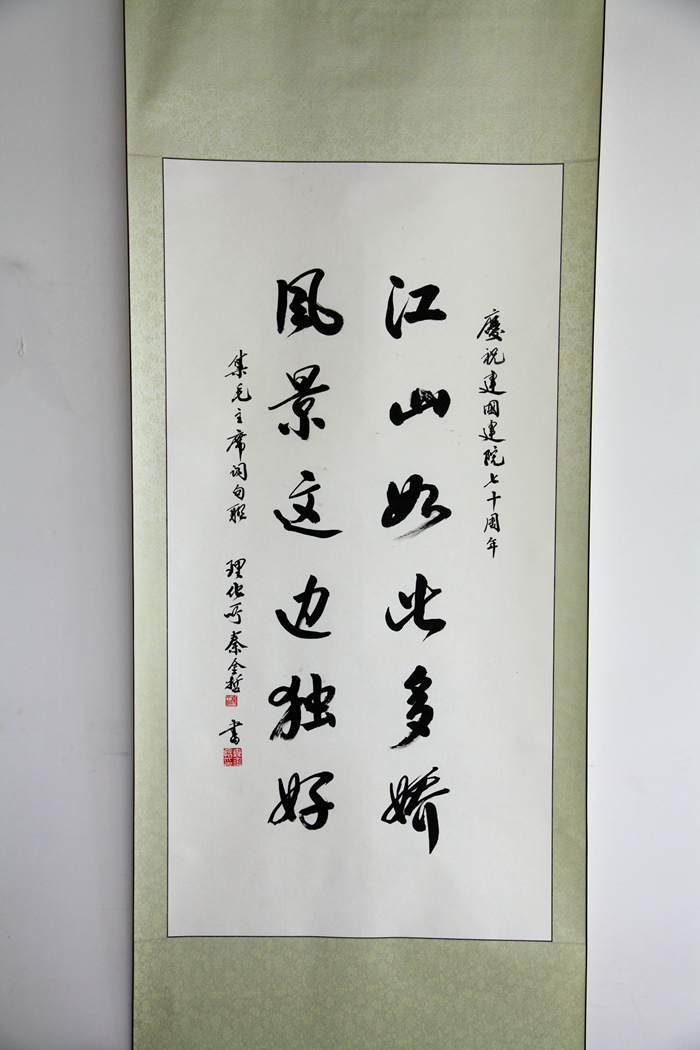 慶祝建國建院七十周年
江山如此多娇
风景这边独好
集毛主席词句联 理化所秦全哲 书